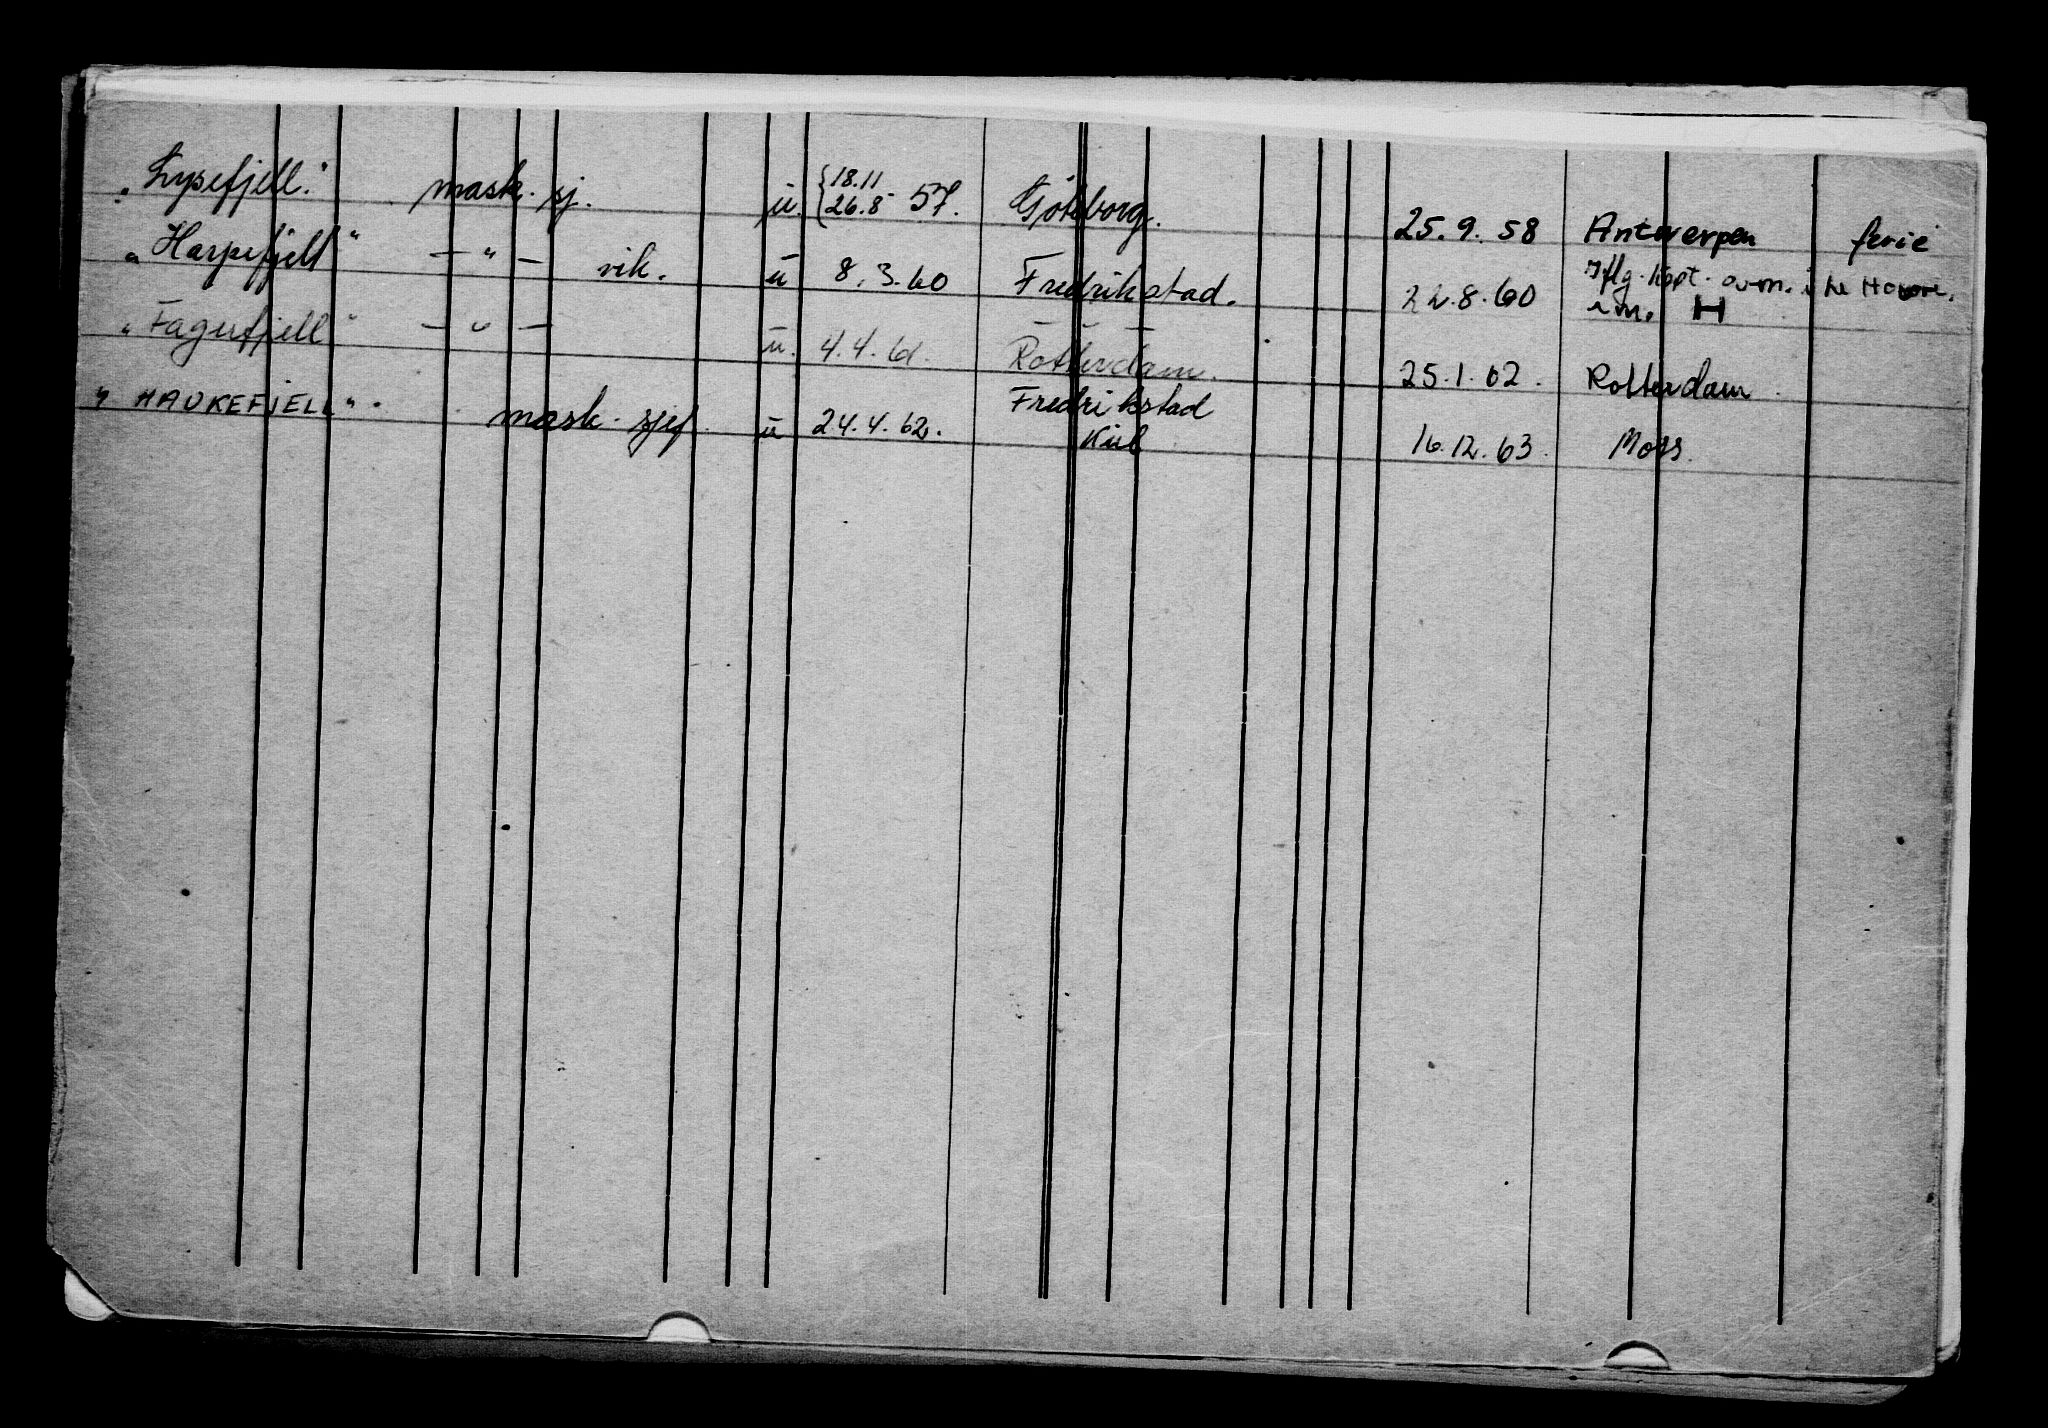 "Lysefjell." mask. sj. u. { 18.11 26.8 57. Göteborg. 25.9.58 Antwerpen ferie
"Harpefjell" — " — vik. u 8.3.60 Fredrikstad. 22.8.60 Iflg. kapt. av.m. i Le Havre.
i m. H
"Fagerfjell" — " — u. 4.4.61. Rotterdam. 25.1.62. Rotterdam
Fredrikstad
"HAUKEFJELL" mask. sjef u 24.4.62. Kiel 16.12.63. Moss.